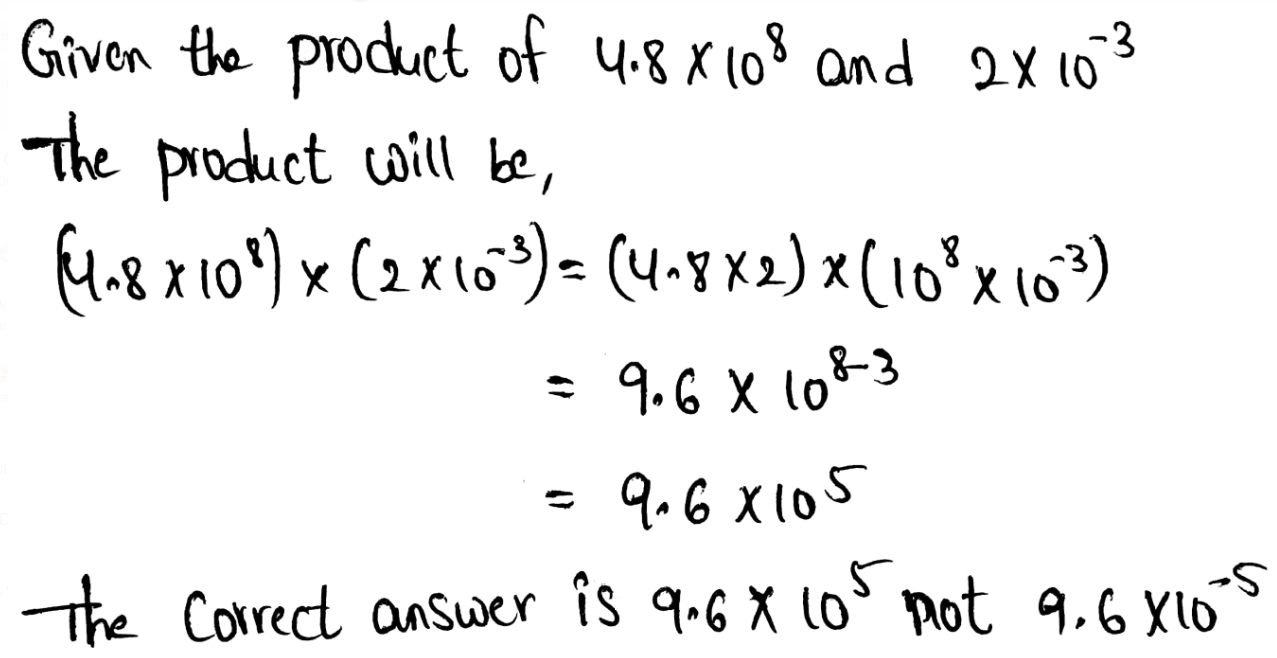 Given the product of 4.8 × 10⁸ and 2 × 10⁻³
The product will be,
(4.8 × 10⁸) × (2 × 10⁻³) = (4.8 × 2) × (10⁸ × 10⁻³)
= 9.6 × 10⁸⁻³
= 9.6 × 10⁵
The correct answer is 9.6 × 10⁵ not 9.6 × 10⁻⁵